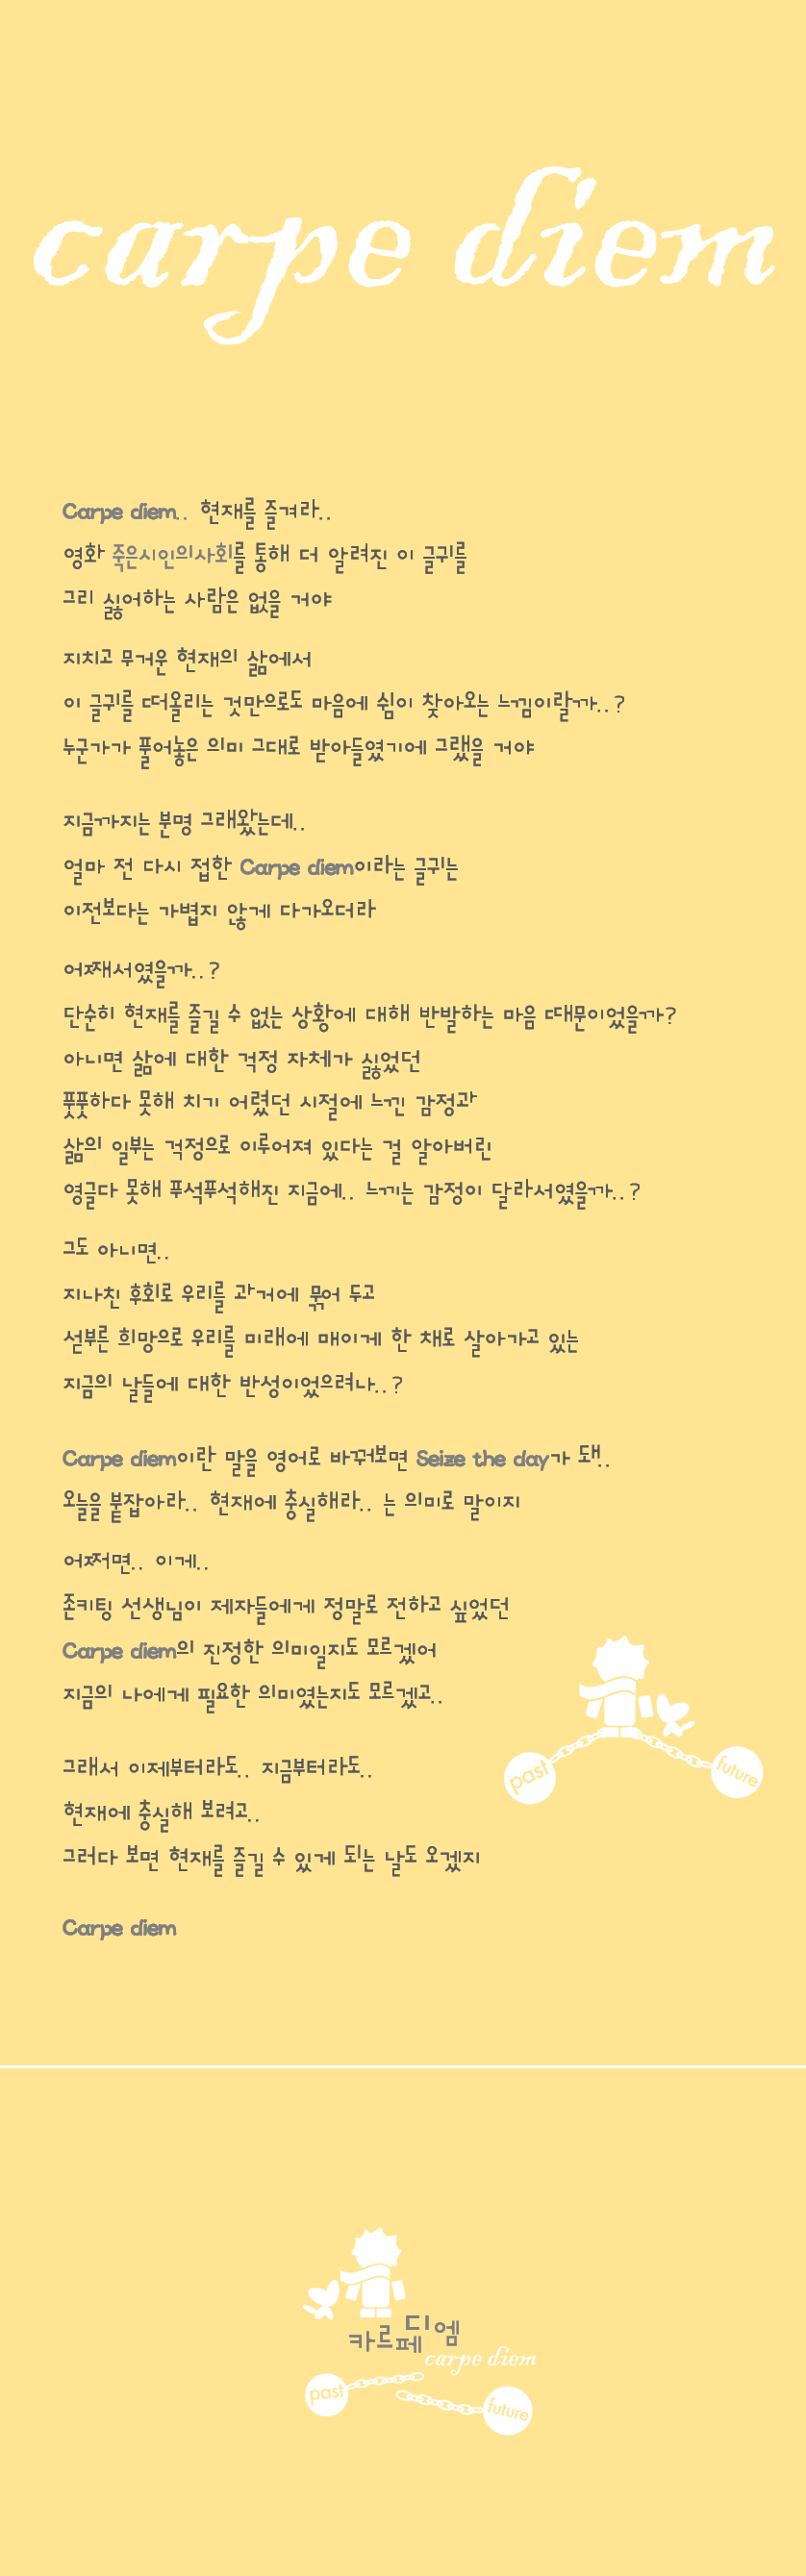 carpe diem
Carpe diem.. 현재를 즐겨라..
영화 죽은시인의사회를 통해 더 알려진 이 글귀를
그리 싫어하는 사람은 없을 거야
지치고 무거운 현재의 삶에서
이 글귀를 떠올리는 것만으로도 마음에 쉼이 찾아오는 느낌이랄까..?
누군가가 풀어놓은 의미 그대로 받아들였기에 그랬을 거야
지금까지는 분명 그래왔는데..
얼마 전 다시 접한 Carpe diem이라는 글귀는
이전보다는 가볍지 않게 다가오더라
어째서였을까..?
단순히 현재를 즐길 수 없는 상황에 대해 반발하는 마음 때문이었을까?
아니면 삶에 대한 걱정 자체가 싫었던
풋풋하다 못해 치기 어렸던 시절에 느낀 감정과
삶의 일부는 걱정으로 이루어져 있다는 걸 알아버린
영글다 못해 푸석푸석해진 지금에.. 느끼는 감정이 달라서였을까..?
그도 아니면..
지나친 후회로 우리를 과거에 묶어 두고
섣부른 희망으로 우리를 미래에 매이게 한 채로 살아가고 있는
지금의 날들에 대한 반성이었으려나..?
Carpe diem이란 말을 영어로 바꿔보면 Seize the day가 돼..
오늘을 붙잡아라.. 현재에 충실해라.. 는 의미로 말이지
어쩌면.. 이게..
존키팅 선생님이 제자들에게 정말로 전하고 싶었던
Carpe diem의 진정한 의미일지도 모르겠어
지금의 나에게 필요한 의미였는지도 모르겠고..
past
future
그래서 이제부터라도.. 지금부터라도..
현재에 충실해 보려고..
그러다 보면 현재를 즐길 수 있게 되는 날도 오겠지
Carpe diem
카르페디엠
carpe diem
past
future